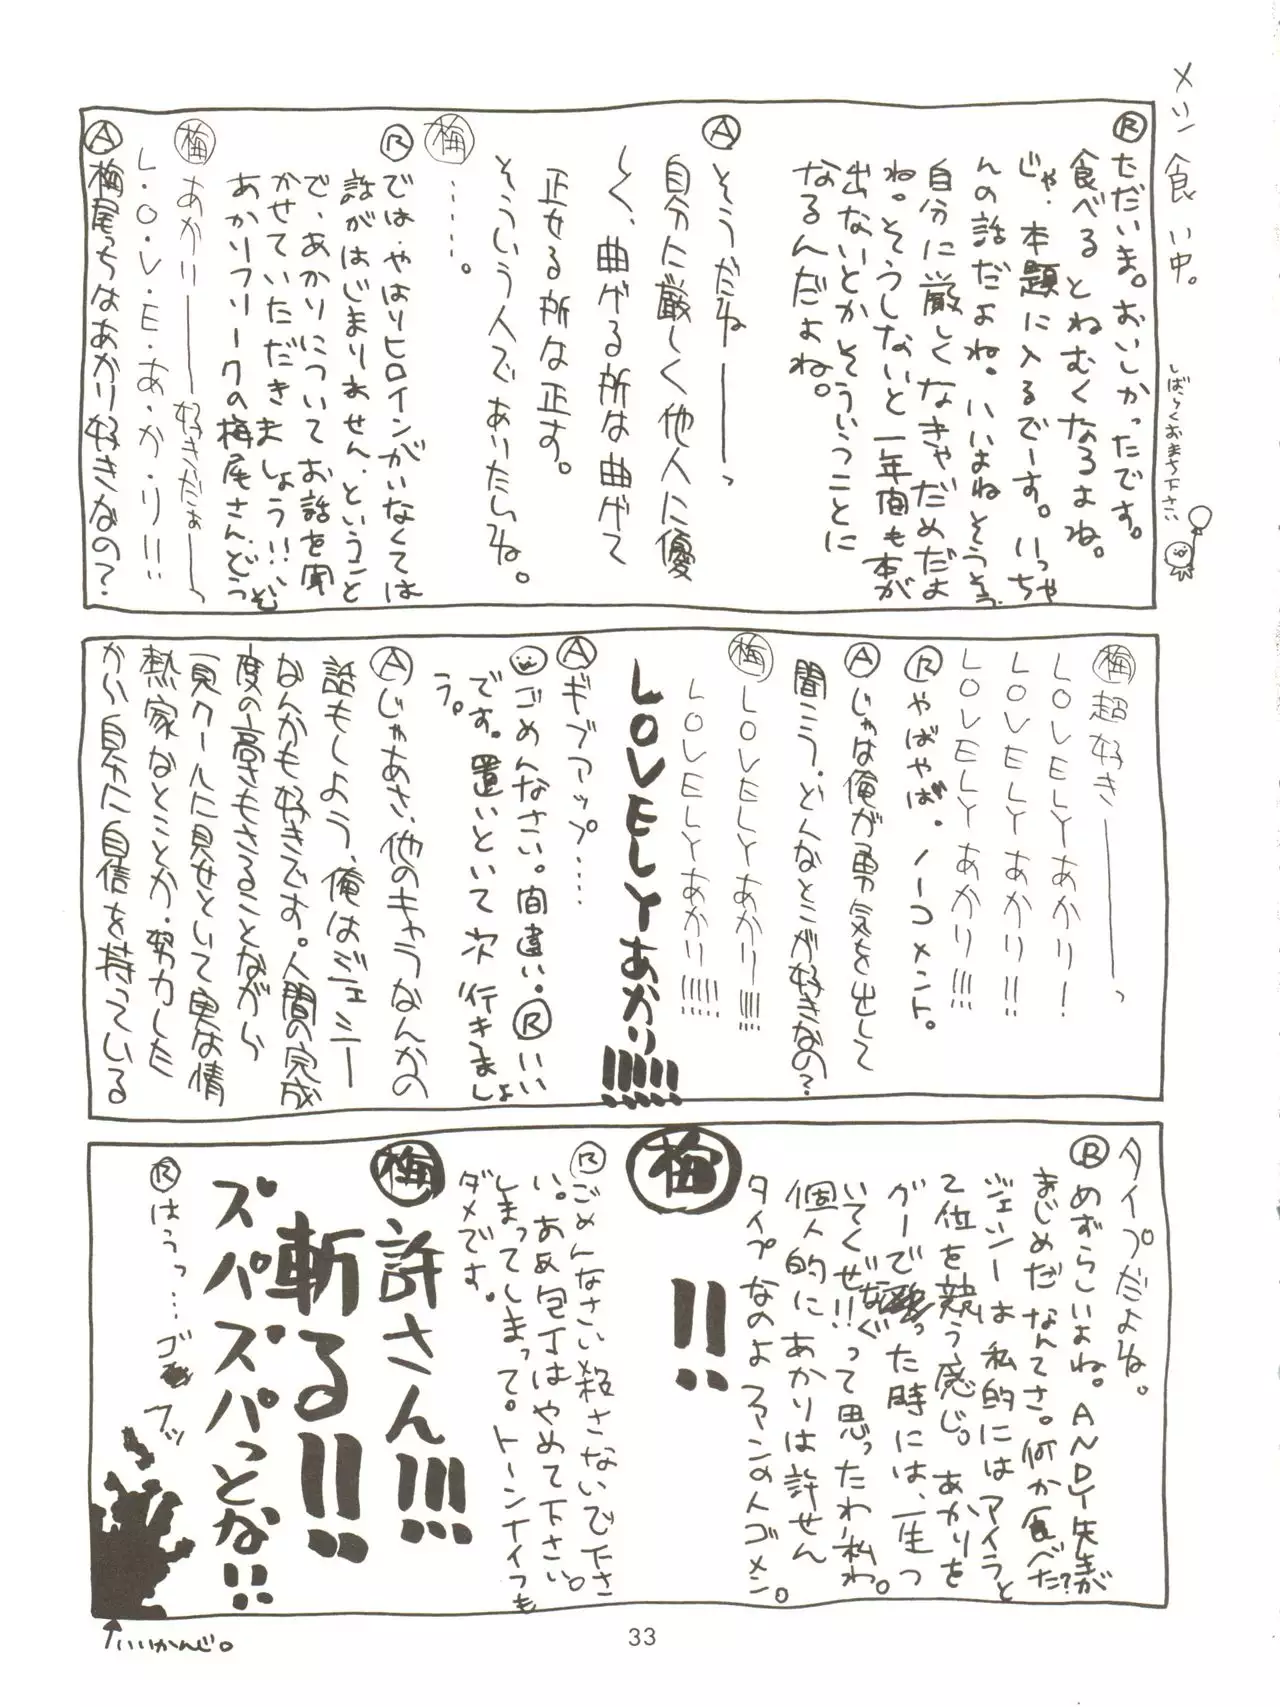 メシ食い中。
しばらくおまち下さい
Ⓡただいま。おいしかったです。
食べるとねむくなるよね。
じゃ、本題に入るでーす。いっちゃ
んの話だよね。いいよねそうそう
自分に厳しくなきゃだめだよ
ね。そうしないと一年間も本が
出ないとかそういうことに
なるんだよね。
Ⓐそうだねーーーっ
自分に厳しく他人に優
しく、曲がる所は曲がて
正せる所な正す。
そういう人でありたいね。
㊬梅
……。
Ⓡでは、やはりヒロインがいなくては
話がはじまりません、ということ
で、あかりについてお話を聞
かせていただきましょう!!、
あかりフリークの梅尾さんどうぞ
梅 あかりーーー好きだぁーーっ
L・O・V・E・あ・か・り!!
Ⓐ梅尾っちはあかり好きなの?
梅 超好きーーーーっ
LOVELYあかり!
LOVELYあかり!!
LOVELYあかり!!!
Ⓡやばやば、ノーコメント。
Ⓐじゃは俺が勇気を出して
聞こう、どんなとこが好きなの?
梅 LOVELYあかり!!!!
LOVELYあかり!!!!!
LOVELYあかり!!!!!!
Ⓐギブアップ……
ごめんなさい。間違い。Ⓡいい
です。置いといて次、行きましょ
う。
Ⓐじゃあさ、他のキャラなんかの
話もしよう、俺はジェシー
なんかも好きです。人間の完成
度の高さもさることながら
一見クールに見せといて実は情
熱家なとことか、努力した
から自分に自信を持っている
タイプだよね。
Ⓡめずらしいよね。ANDY先生が
まじめだなんてさ。何か食べた?
ジェシーは私的にはアイラと
2位を競う感じ。あかりを
ガーでなぐった時には、一生つ
いてくぜ!!って思ったわ私わ。
個人的にあかりは許せん
タイプなのよファンの人ゴメン。
梅
!!
Ⓡごめんなさい殺さないで下さ
い。ああ包丁はやめて下さい。
しまってしまって。トーンナイフも
ダメです。
梅 許さん!!!
斬る!!
ズパズパっとな!!
Ⓡはうっ…ゴフッ
↑いいかんじ。
33